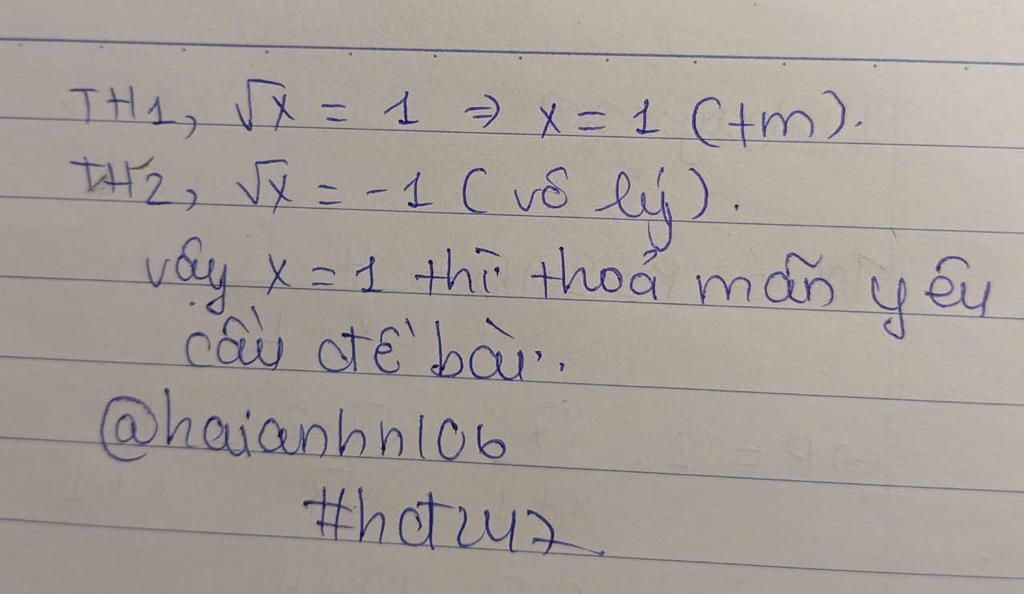 TH1, √x = 1 ⇒ x = 1 (tm).
TH2, √x = -1 (vô lý).
vậy x = 1 thì thoả mãn yêu
cầu đề bài.
@haianhn106
#hd247